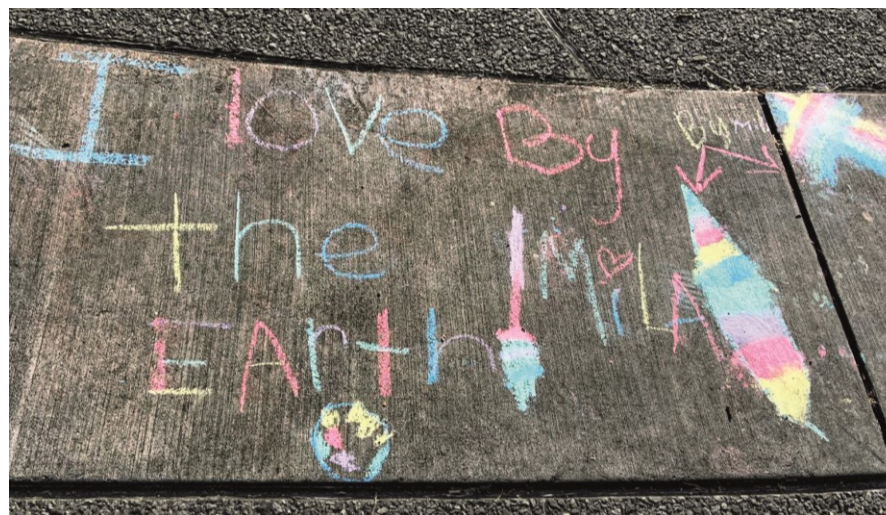 I love
the
EArth!
By
MiLA
By Mila